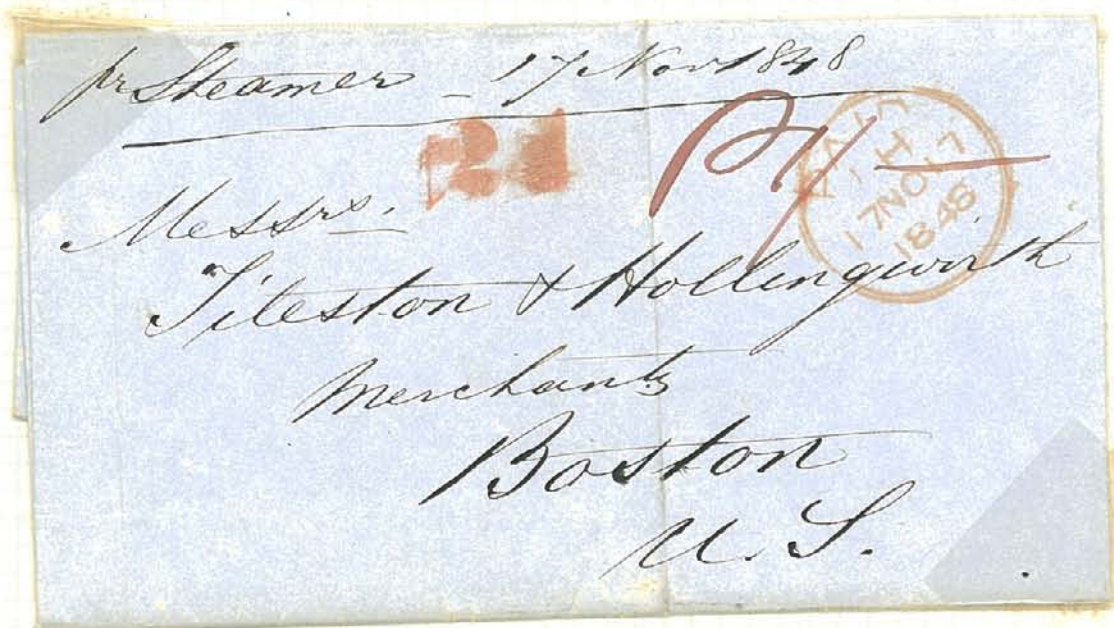 pr Steamer - 17 Nov 1848
P 1/-
H
17NO17
1848
Messrs.
Tileston & Hollingworth
Merchants
Boston
U. S.